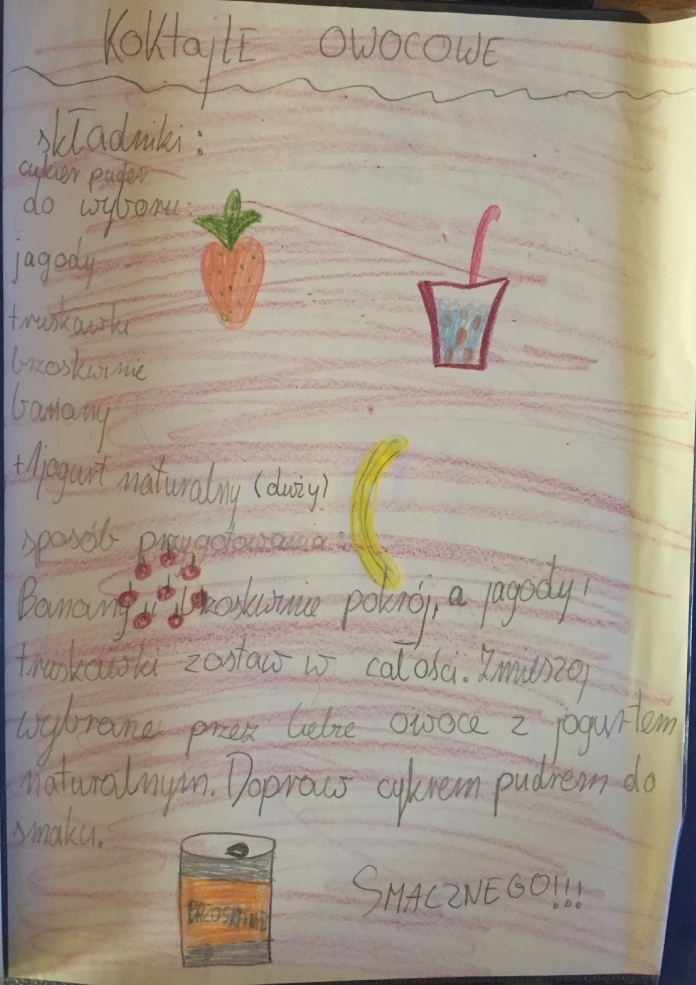 KoktajlE OWOCOWE
składniki:
cukier puder
do wyboru:
jagody
truskawki
brzoskwinie
banany
+1jogurt naturalny (duży)
sposób przygotowania:
Banany i brzoskwinie pokrój, a jagody i
truskawki zostaw w całości. Zmieszaj
wybrane przez Ciebie owoce z jogurtem
naturalnym. Dopraw cukrem pudrem do
smaku.
BRZOSKWINIE
SMACZNEGO!!!